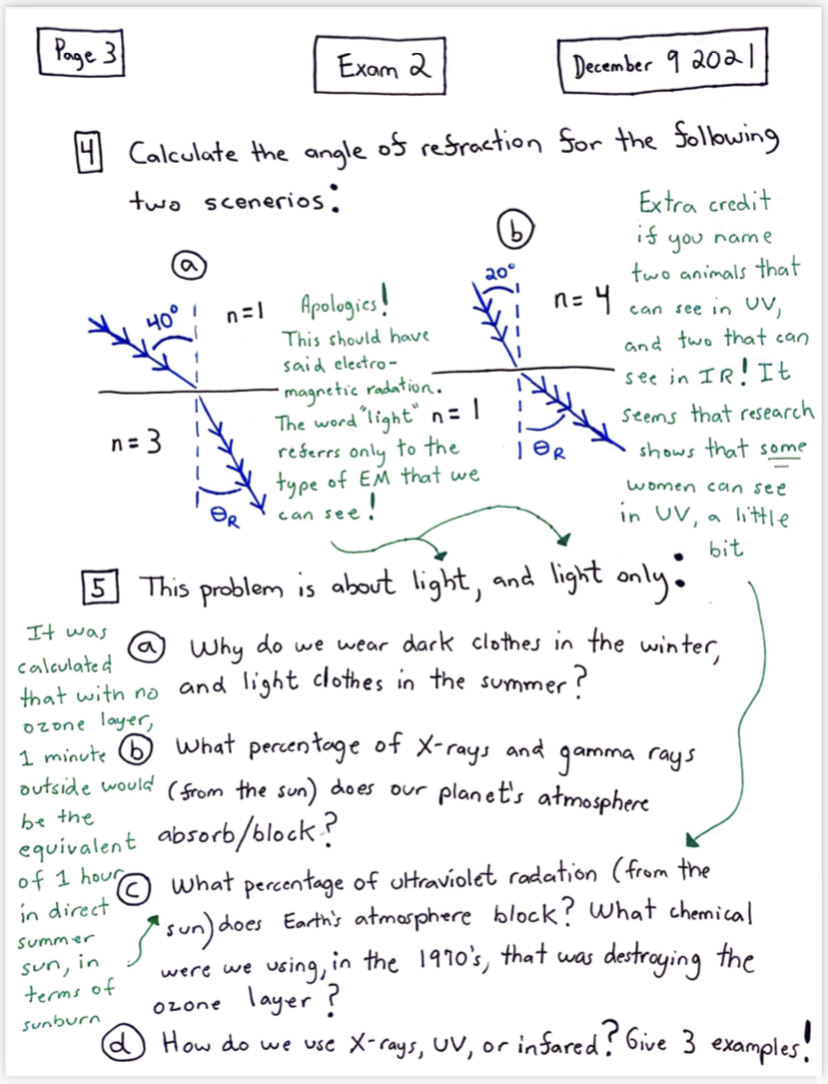 Page 3
Exam 2
December 9 2021
4 Calculate the angle of refraction for the following
two scenerios:
a
40°
n=1
n=3
θR
Apologies!
This should have
said electro-
magnetic radation.
The word "light"
referrs only to the
type of EM that we
can see!
b
20°
n=4
n=1
θR
Extra credit
if you name
two animals that
can see in UV,
and two that can
see in IR! It
seems that research
shows that some
women can see
in UV, a little
bit
5 This problem is about light, and light only:
a Why do we wear dark clothes in the winter,
and light clothes in the summer?
b What percentage of X-rays and gamma rays
(from the sun) does our planet's atmosphere
absorb/block?
c What percentage of ultraviolet radation (from the
sun) does Earth's atmosphere block? What chemical
were we using, in the 1970's, that was destroying the
ozone layer?
d How do we use X-rays, UV, or infared? Give 3 examples!
It was
calculated
that with no
ozone layer,
1 minute
outside would
be the
equivalent
of 1 hour
in direct
summer
sun, in
terms of
sunburn